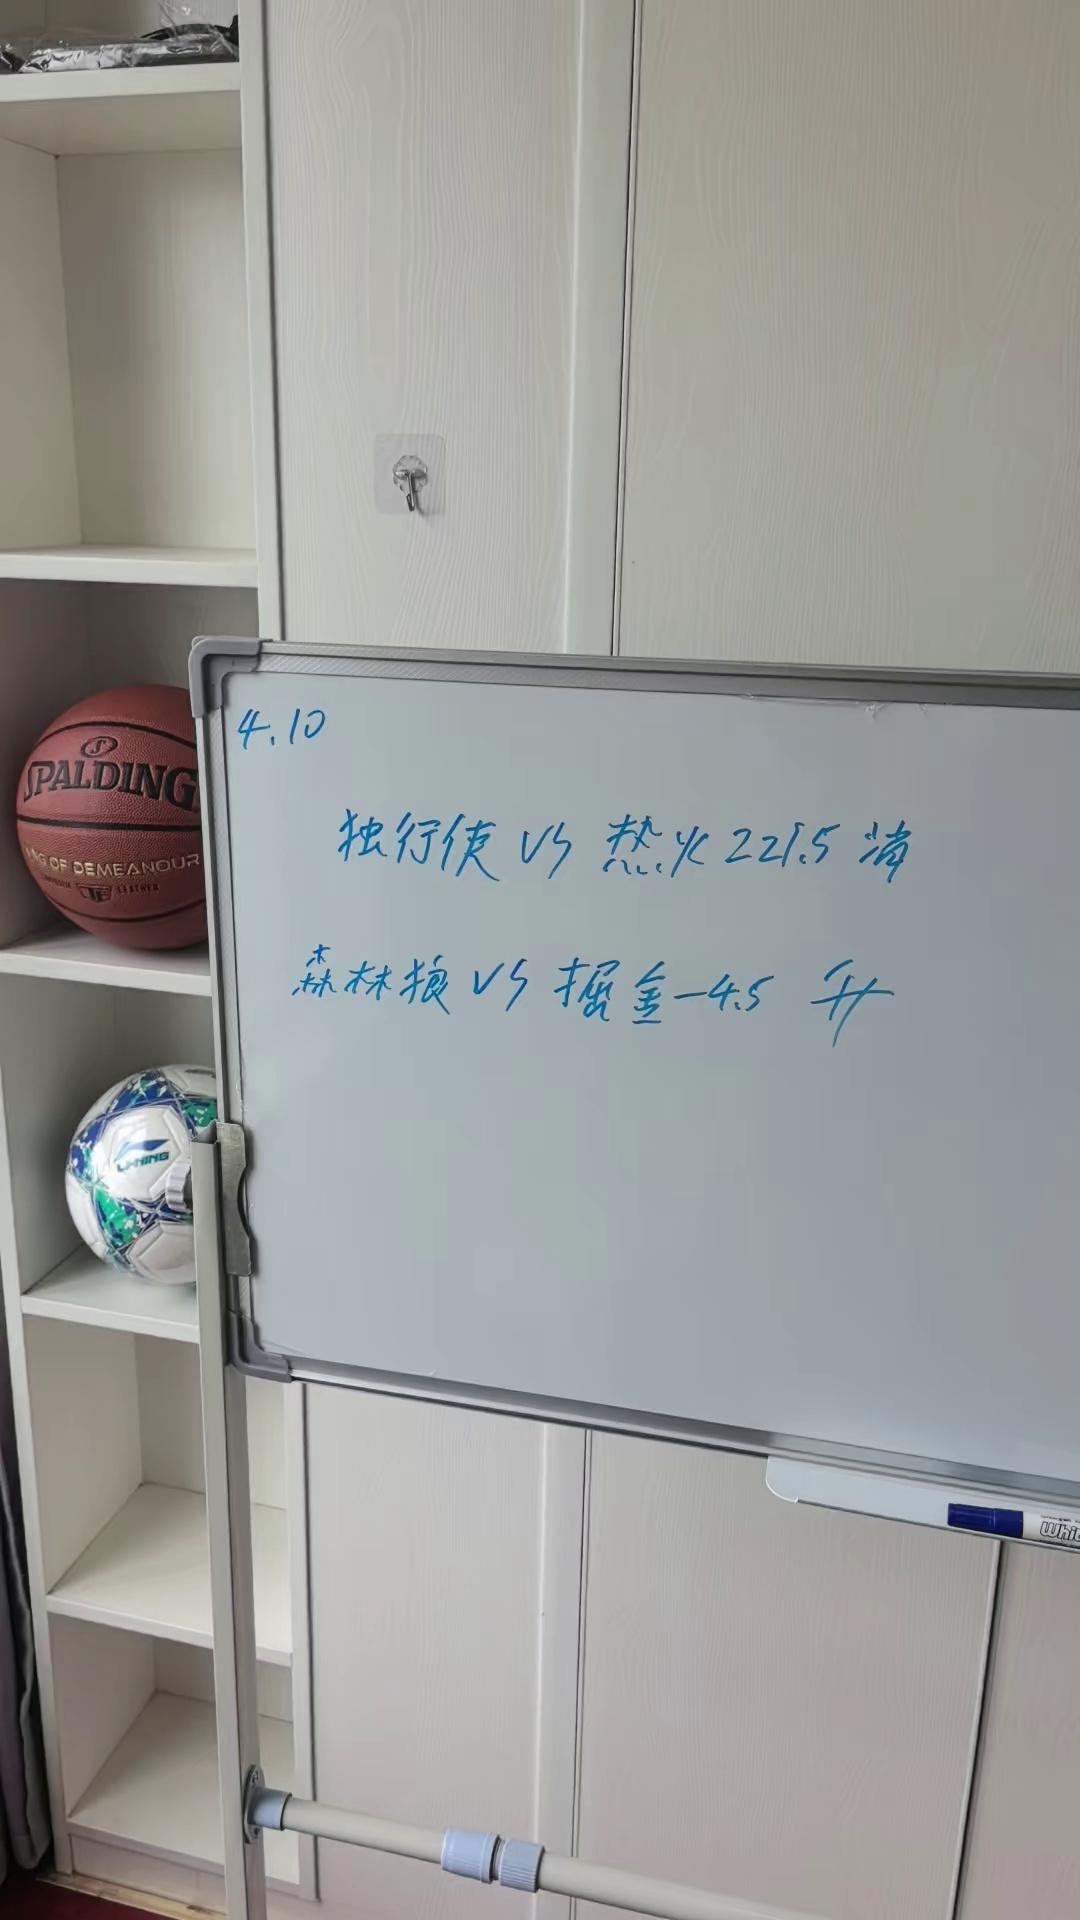 SPALDING
NG OF DEMEANOUR
COMPOSITE LEATHER
TF
4.10
独行侠 VS 热火 221.5
森林狼 VS 掘金 -4.5 升
LI-NING
Whit